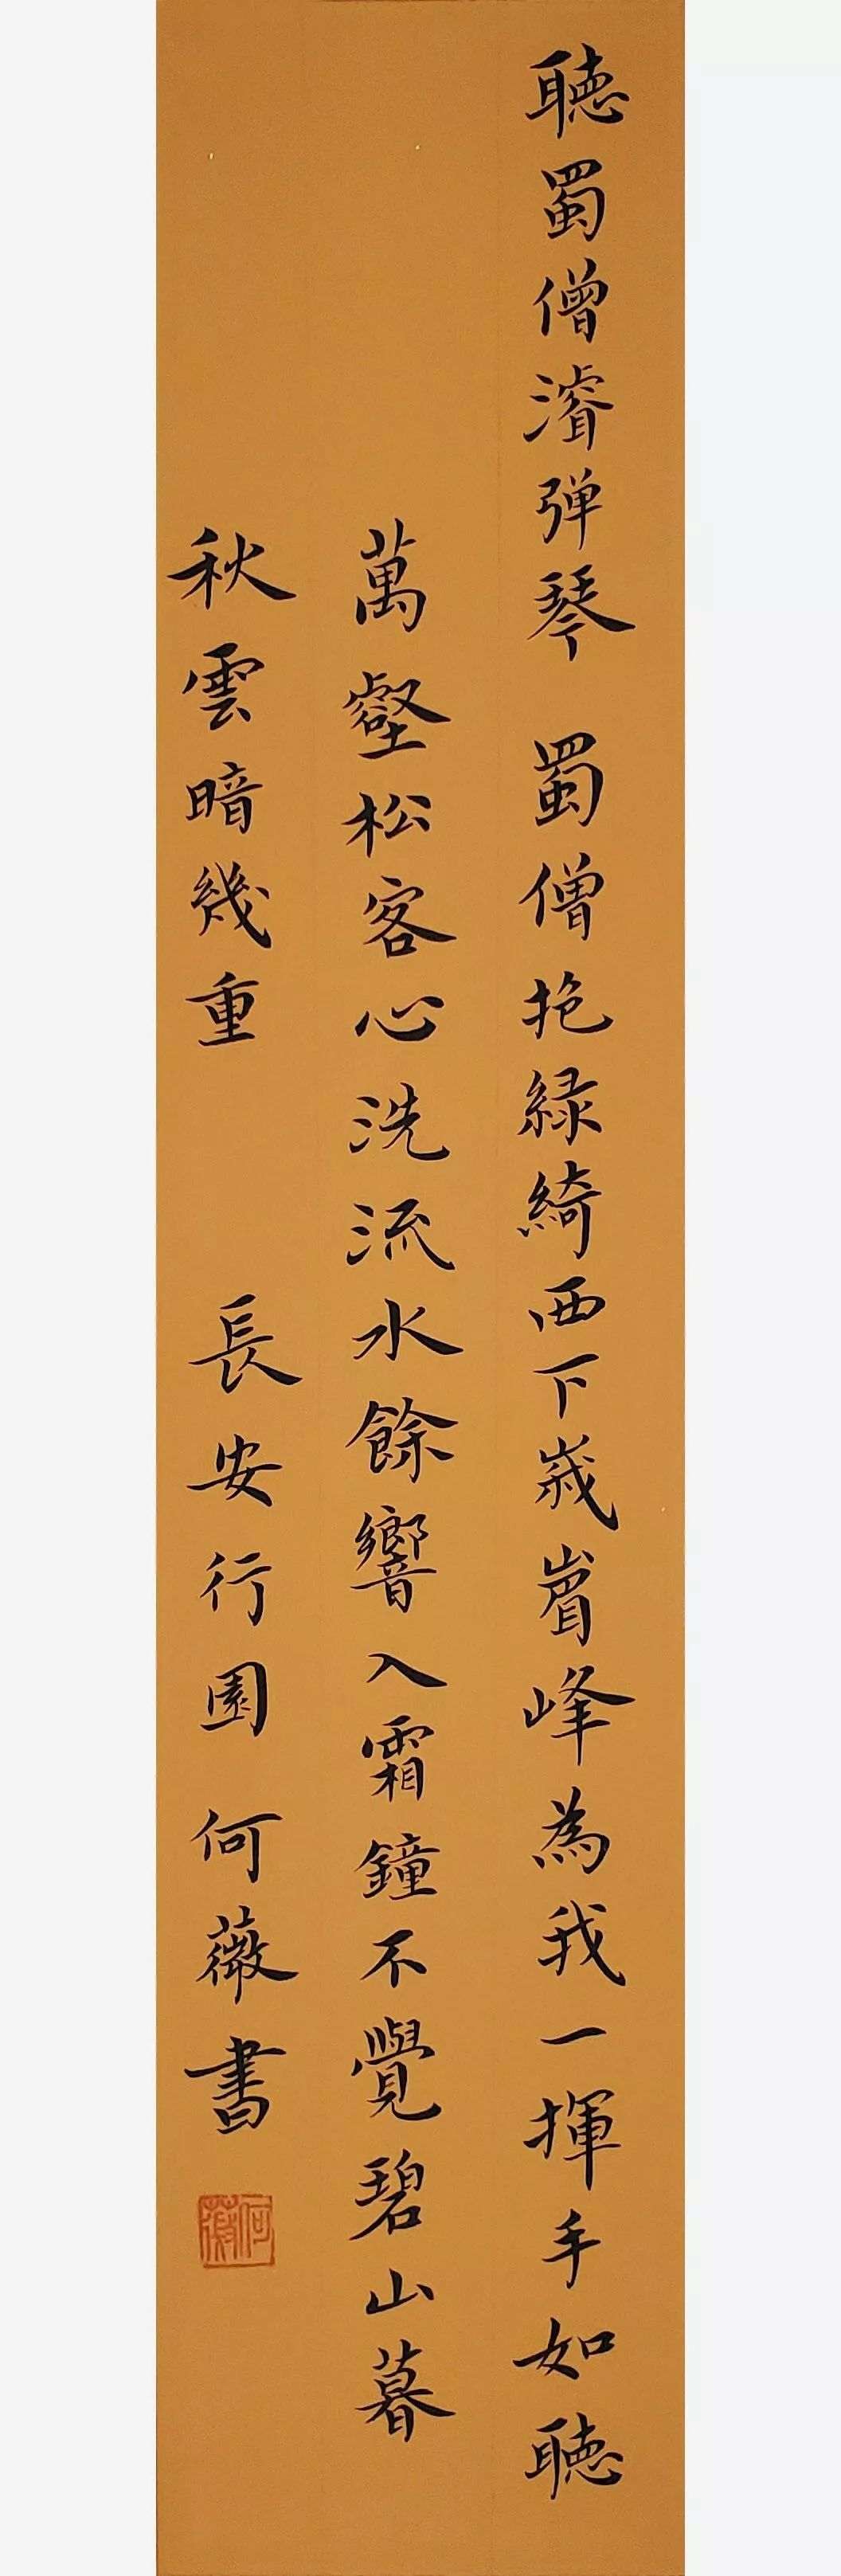 聽蜀僧濬弹琴 蜀僧抱緑綺西下峩睂峰為我一揮手如聽
萬壑松客心洗流水餘響入霜鐘不覺碧山暮
秋雲暗幾重 長安行園何薇書
何薇